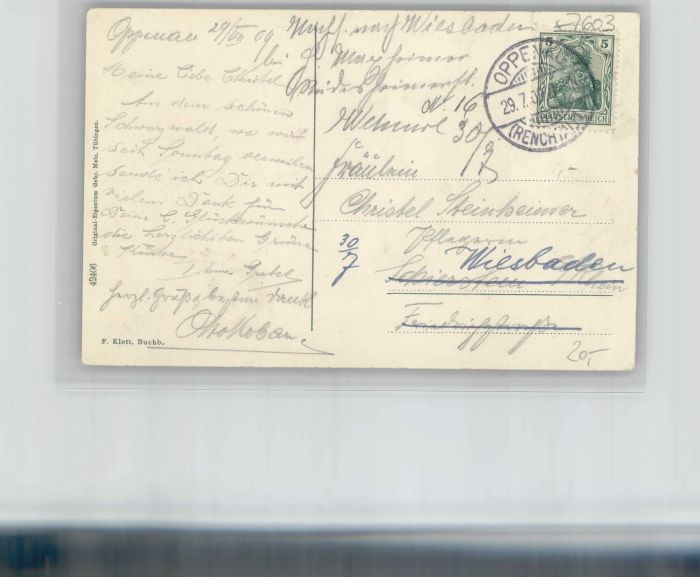 Oppenau 29/VII 09
Meine liebe Christel
Aus dem schönen
Schwarzwald, wo wir
seit Sonntag verweilen
sende ich Dir mit
vielem Dank für
Deine l. Glückwünsche
die herzlichsten Grüsse
& Küsse
Deine Gretel
herzl.
F. Klett, Buchb.
42406
Original-Eigentum Gebr. Metz, Tübingen.
nach Wiesbaden
bei
N. 16
30/7
Fräulein
Christel Steinheimer
Pflegerin
Wiesbaden
Schierstein Rhein
30
7
20,-
7603
5 5
DEUTSCHES REICH
OPPENAU
29.7.09
(RENCHTAL)